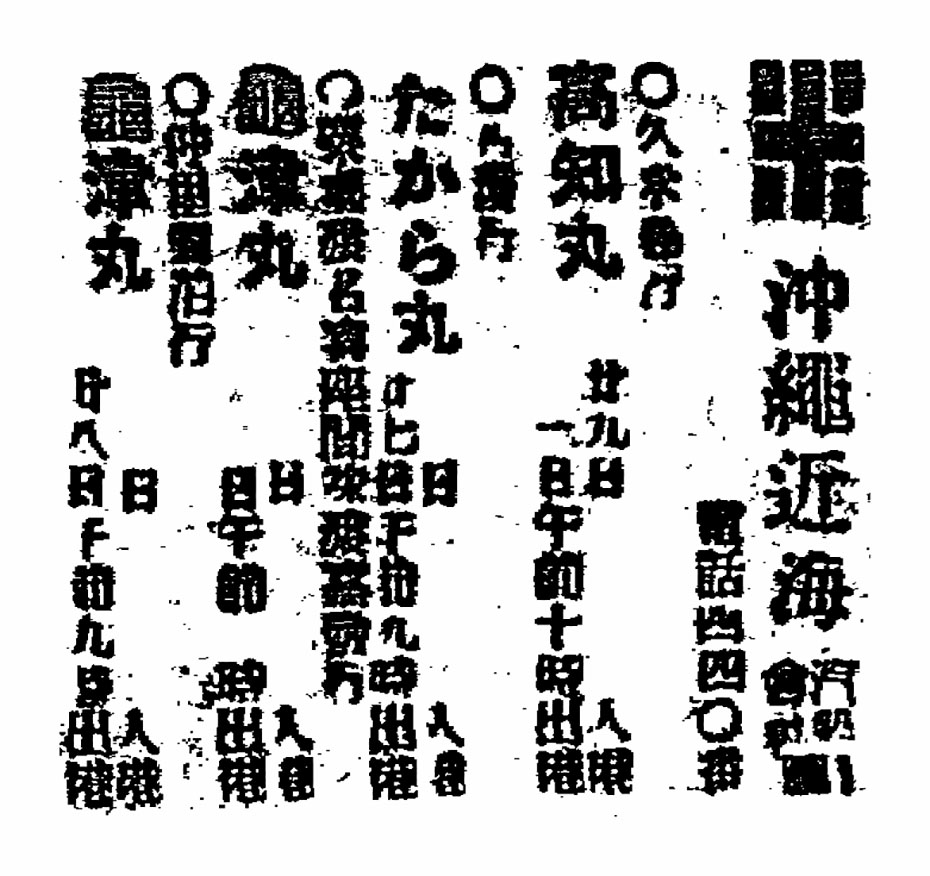 沖繩近海汽船會社
電話四四〇番
○久米島行
高知丸
廿九日入港
一日午前十時出港
たから丸
日入港
廿七日午前九時出港
○粟國渡名喜座間味渡嘉敷行
龜津丸
日入港
日午前 時出港
龜津丸
日入港
廿八日午前九時出港